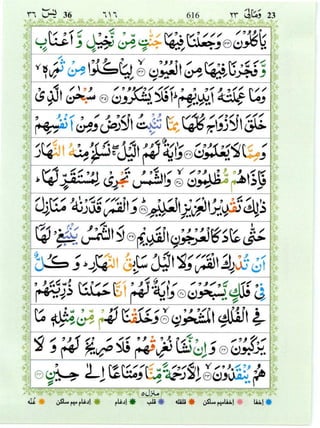 يٰسٓ ٣٦ 36 ٦١٦ 616 ٢٣ وَمَالِىَ 23
يَاْكُلُوْنَ وَجَعَلْنَا فِيْهَا جَنّٰتٍ مِّنْ نَّخِيْلٍ وَّ اَعْنَابٍ
وَّفَجَّرْنَا فِيْهَا مِنَ الْعُيُوْنِ لِيَاْكُلُوْا مِنْ ثَمَرِهٖ
وَمَا عَمِلَتْهُ اَيْدِيْهِمْ اَفَلَا يَشْكُرُوْنَ سُبْحٰنَ الَّذِىْ
خَلَقَ الْاَزْوَاجَ كُلَّهَا مِمَّا تُنْۢبِتُ الْاَرْضُ وَمِنْ اَنْفُسِهِمْ
وَمِمَّا لَا يَعْلَمُوْنَ وَاٰيَةٌ لَّهُمُ الَّيْلُ نَسْلَخُ مِنْهُ النَّهَارَ
فَاِذَاهُمْ مُّظْلِمُوْنَ وَالشَّمْسُ تَجْرِىْ لِمُسْتَقَرٍّ لَّهَا
ذٰلِكَ تَقْدِيْرُ الْعَزِيْزِ الْعَلِيْمِ وَ الْقَمَرَ قَدَّرْنٰهُ مَنَازِلَ
حَتّٰى عَادَ كَالْعُرْجُوْنِ الْقَدِيْمِ لَا الشَّمْسُ يَنْۢبَغِىْ لَهَا
اَنْ تُدْرِكَ الْقَمَرَ وَلَا الَّيْلُ سَابِقُ النَّهَارِ وَ كُلٌّ
فِىْ فَلَكٍ يَّسْبَحُوْنَ وَاٰيَةٌ لَّهُمْ اَنَّا حَمَلْنَا ذُرِّيَّتَهُمْ
فِى الْفُلْكِ الْمَشْحُوْنِ وَخَلَقْنَا لَهُمْ مِّنْ مِّثْلِهٖ مَا
يَرْكَبُوْنَ وَاِنْ نَّشَاْ نُغْرِقْهُمْ فَلَا صَرِيْخَ لَهُمْ وَ لَا
هُمْ يُنْقَذُوْنَ اِلَّا رَحْمَةً مِّنَّا وَمَتَاعًا اِلٰى حِيْنٍ
منزل ٥
اخفا اخفا میم ساکن قلقلہ قلب ادغام ادغام میم ساکن غنّہ